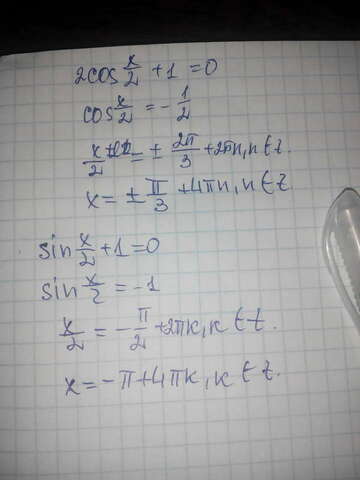 2cos x/2 + 1 = 0
cos x/2 = - 1/2
x/2 = ± 2π/3 + 2πn, n ∈ z.
x = ± π/3 + 4πn, n ∈ z
sin x/2 + 1 = 0
sin x/2 = -1
x/2 = - π/2 + 2πk, k ∈ z.
x = -π + 4πk, k ∈ z.